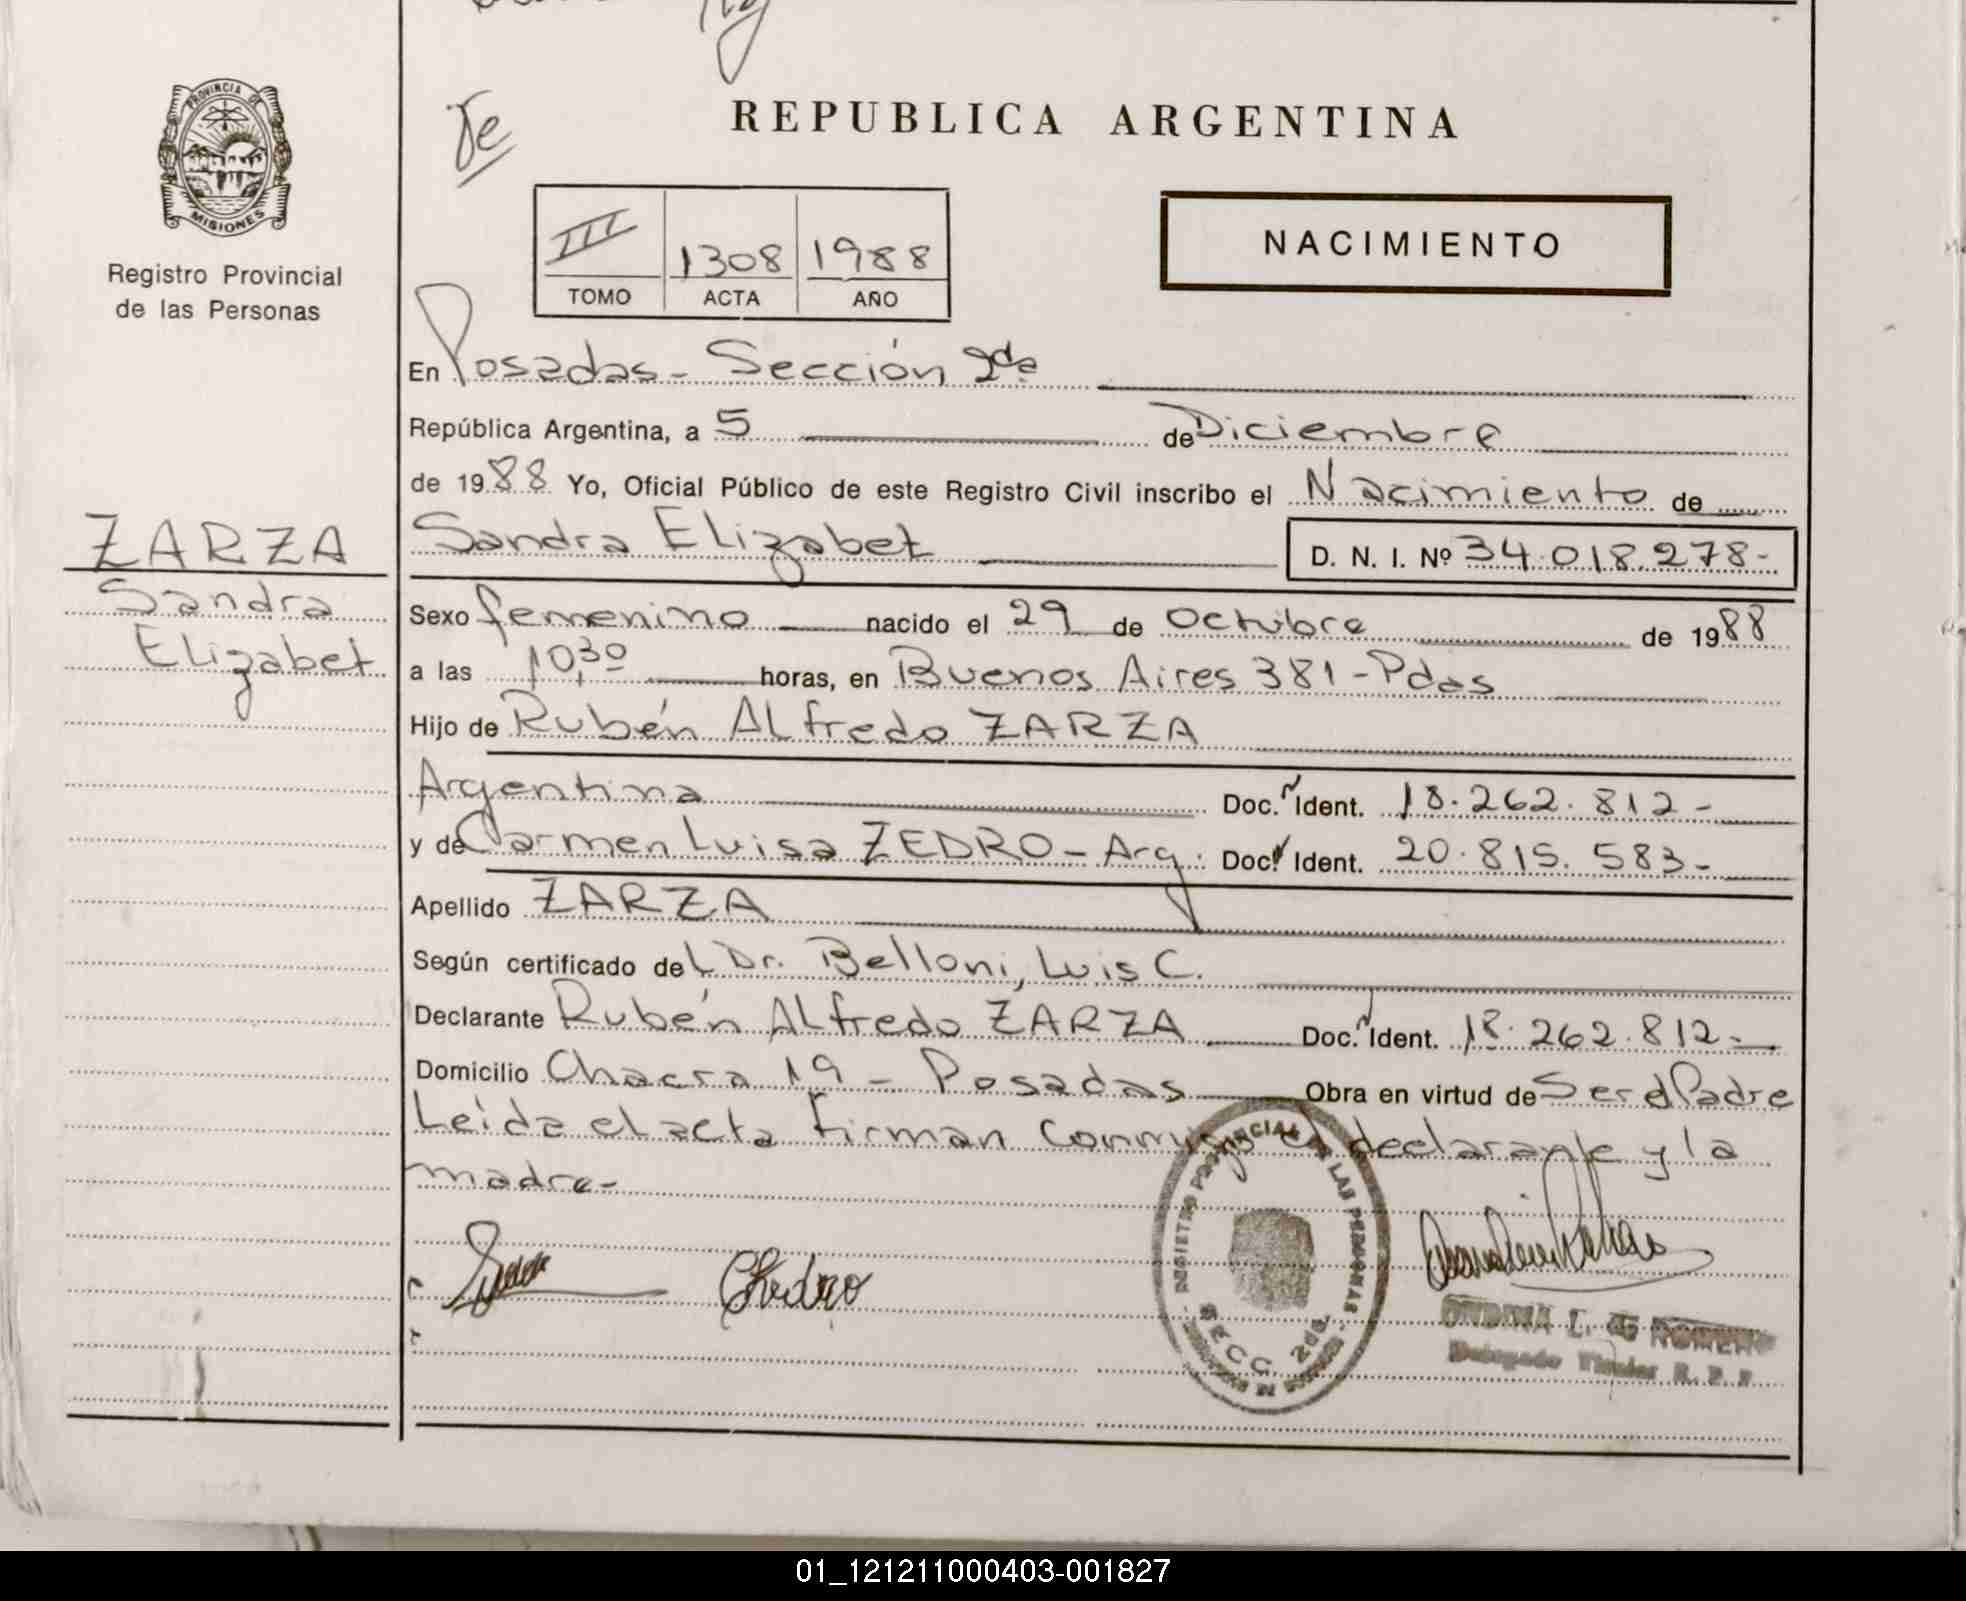 PROVINCIA DE
MISIONES
Registro Provincial
de las Personas
ZARZA
Sandra
Elizabet
REPUBLICA ARGENTINA
III 1308 1988
TOMO ACTA AÑO
NACIMIENTO
En Posadas - Sección 2da
República Argentina, a 5 de Diciembre
de 1988 Yo, Oficial Público de este Registro Civil inscribo el Nacimiento de
Sandra Elizabet D. N. I. Nº 34.018.278-
Sexo femenino nacido el 29 de Octubre de 1988
a las 10,30 horas, en Buenos Aires 381 - Pdas
Hijo de Rubén Alfredo ZARZA
Argentina Doc. Ident. 18.262.812-
y de Carmen Luisa ZEDRO - Arg. Doc. Ident. 20.815.583-
Apellido ZARZA
Según certificado del Dr. Belloni, Luis C.
Declarante Rubén Alfredo ZARZA Doc. Ident. 18.262.812-
Domicilio Chacra 19 - Posadas Obra en virtud de Ser el Padre
Leída el acta firman conmigo el declarante y la
madre-
REGISTRO PROVINCIAL DE LAS PERSONAS
SECC. 2da.
ONDINA L. de ROMERO
Delegado Titular R. P. P.
01_121211000403-001827